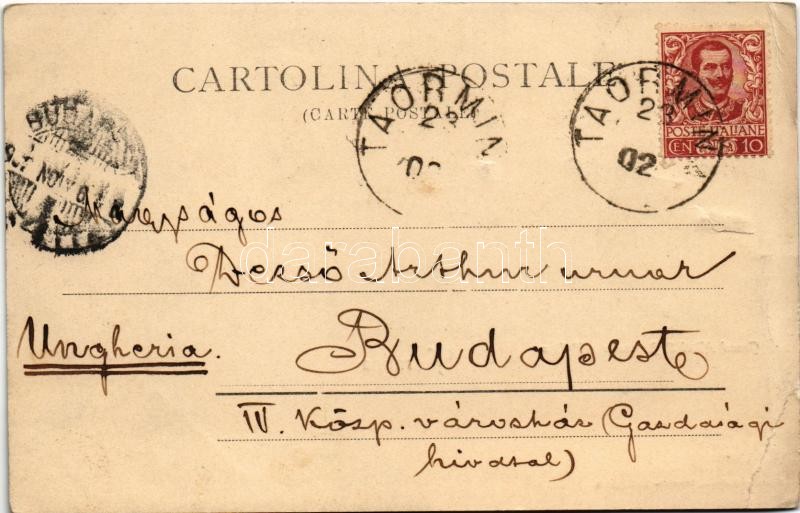 CARTOLINA POSTALE
(CARTE POSTALE)
TAORMIN
23
02
TAORMIN
23
02
POSTE ITALIANE
CEN. 10
BUDAP
Nagyságos
Dezső Arthur urnak
Ungheria.
Budapest
IV. Közp. városház (Gazdasági
hivatal)
darabanth